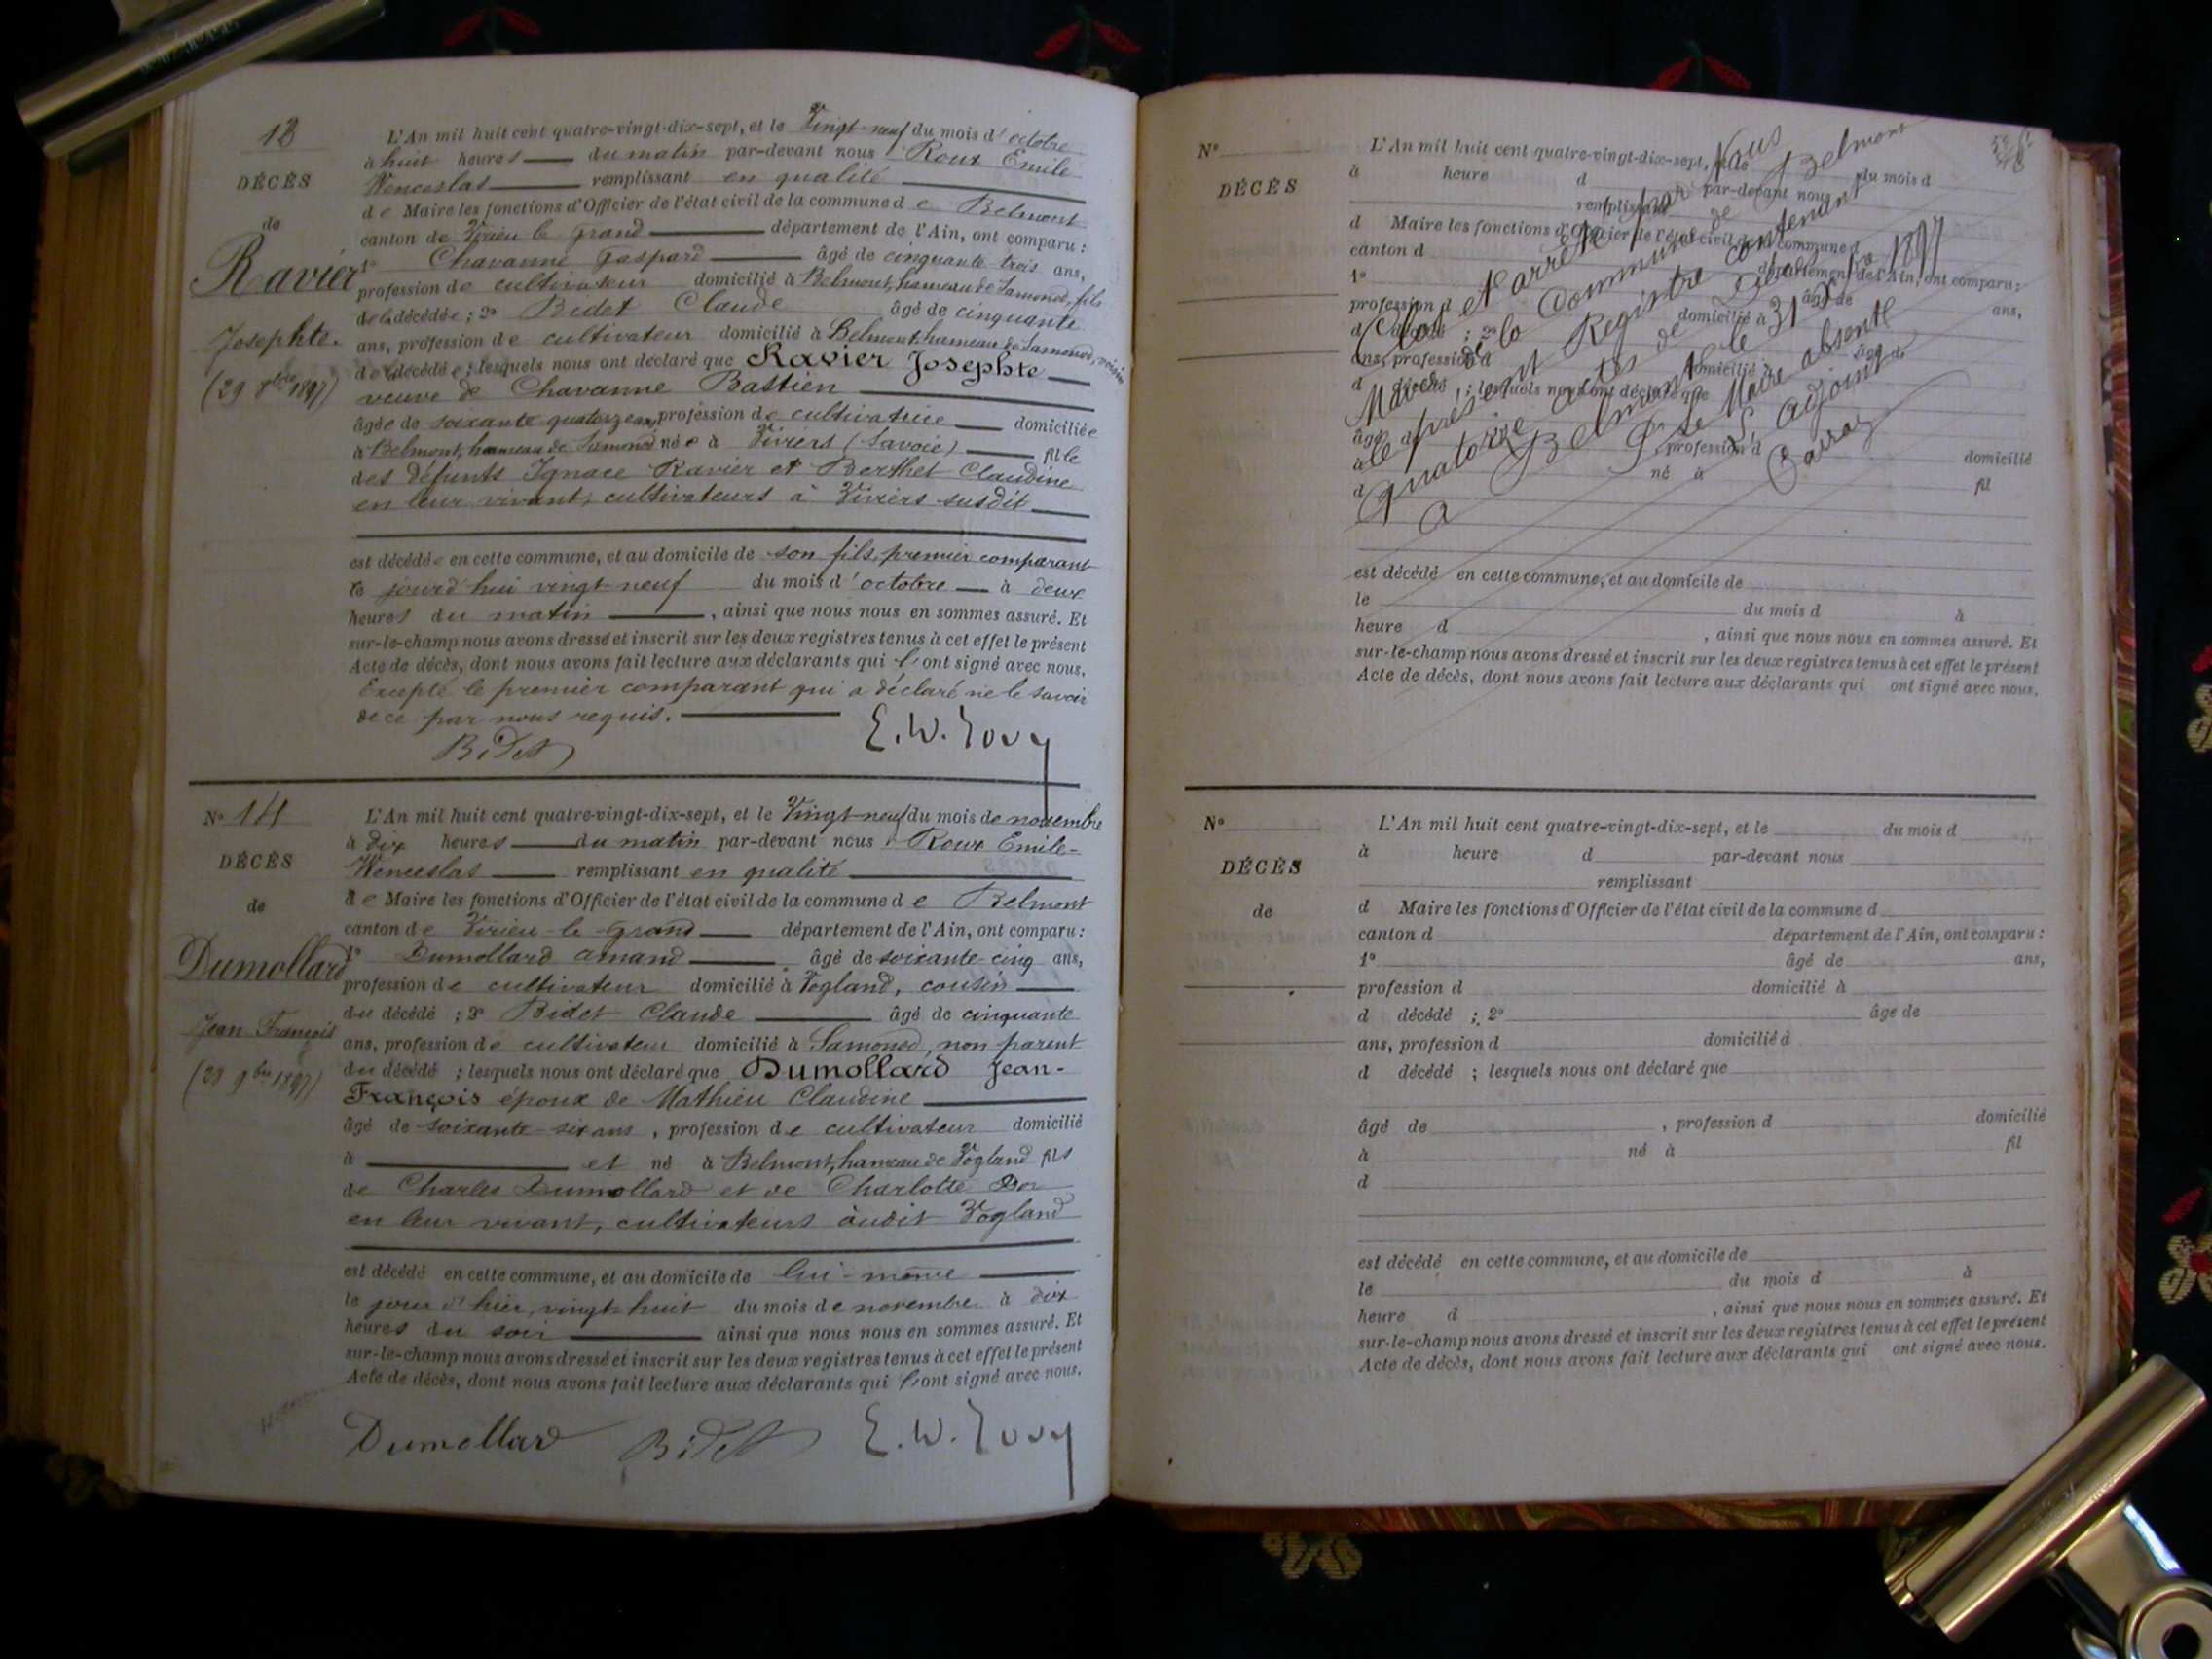 13
DÉCÈS
de
Ravier
Josephte.
(29 8bre 1897)
L'An mil huit cent quatre-vingt-dix-sept, et le Vingt-neuf du mois d'octobre
à huit heures du matin par-devant nous Roux Emile
Wenceslas remplissant en qualité
de Maire les fonctions d'Officier de l'état civil de la commune de Belmont
canton de Virieu le grand département de l'Ain, ont comparu :
1° Chavanne Gaspard âgé de cinquante trois ans,
profession de cultivateur domicilié à Belmont, hameau de Samonod, fils
de la décédée ; 2° Bidet Claude âgé de cinquante
ans, profession de cultivateur domicilié à Belmont, hameau de Samonod, voisin
de la décédée ; lesquels nous ont déclaré que Ravier Josephte
veuve de Chavanne Bastien
âgée de soixante quatorze ans, profession de cultivatrice domiciliée
à Belmont, hameau de Samonod née à Viviers (Savoie) fille
des défunts Ignace Ravier et Berthet Claudine
en leur vivant, cultivateurs à Viviers susdit
est décédée en cette commune, et au domicile de son fils, premier comparant
le jourd'hui vingt neuf du mois d'octobre à deux
heures du matin , ainsi que nous nous en sommes assuré. Et
sur-le-champ nous avons dressé et inscrit sur les deux registres tenus à cet effet le présent
Acte de décès, dont nous avons fait lecture aux déclarants qui l'ont signé avec nous.
Excepté le premier comparant qui a déclaré ne le savoir
de ce par nous requis.
Bidet E. W. Roux
N° 14
DÉCÈS
de
Dumollard
Jean François
(28 9bre 1897)
L'An mil huit cent quatre-vingt-dix-sept, et le Vingt-neuf du mois de novembre
à dix heures du matin par-devant nous Roux Emile-
Wenceslas remplissant en qualité
de Maire les fonctions d'Officier de l'état civil de la commune de Belmont
canton de Virieu-le-Grand département de l'Ain, ont comparu :
1° Dumollard Amand âgé de soixante-cinq ans,
profession de cultivateur domicilié à Vogland, cousin
du décédé ; 2° Bidet Claude âgé de cinquante
ans, profession de cultivateur domicilié à Samonod, non parent
du décédé ; lesquels nous ont déclaré que Dumollard Jean-
François époux de Mathieu Claudine
âgé de soixante-six ans , profession de cultivateur domicilié
à et né à Belmont, hameau de Vogland fils
de Charles Dumollard et de Charlotte
en leur vivant, cultivateurs audit Vogland
est décédé en cette commune, et au domicile de lui-même
le jour d'hier, vingt huit du mois de novembre à dix
heures du soir ainsi que nous nous en sommes assuré. Et
sur-le-champ nous avons dressé et inscrit sur les deux registres tenus à cet effet le présent
Acte de décès, dont nous avons fait lecture aux déclarants qui l'ont signé avec nous.
Dumollard Bidet E. W. Roux
N°
DÉCÈS
L'An mil huit cent quatre-vingt-dix-sept, et le du mois d
à heure d par-devant nous
remplissant
d Maire les fonctions d'Officier de l'état civil de la commune d
canton d département de l'Ain, ont comparu :
1° âgé de ans,
profession d domicilié à
d décédé ; 2° âgé de
ans, profession d domicilié à
d décédé ; lesquels nous ont déclaré que
âgé de , profession d domicilié
à né à fil
d
Clos et arrêté par Nous
Maire de la Commune de Belmont
le présent Registre contenant
quatorze actes de Décès
A Belmont le 31 Xbre 1897
Pr le Maire absent
L'adjoint
est décédé en cette commune, et au domicile de
le du mois d à
heure d , ainsi que nous nous en sommes assuré. Et
sur-le-champ nous avons dressé et inscrit sur les deux registres tenus à cet effet le présent
Acte de décès, dont nous avons fait lecture aux déclarants qui ont signé avec nous.
N°
DÉCÈS
de
L'An mil huit cent quatre-vingt-dix-sept, et le du mois d
à heure d par-devant nous
remplissant
d Maire les fonctions d'Officier de l'état civil de la commune d
canton d département de l'Ain, ont comparu :
1° âgé de ans,
profession d domicilié à
d décédé ; 2° âge de
ans, profession d domicilié à
d décédé ; lesquels nous ont déclaré que
âgé de , profession d domicilié
à né à fil
d
est décédé en cette commune, et au domicile de
le du mois d à
heure d , ainsi que nous nous en sommes assuré. Et
sur-le-champ nous avons dressé et inscrit sur les deux registres tenus à cet effet le présent
Acte de décès, dont nous avons fait lecture aux déclarants qui ont signé avec nous.